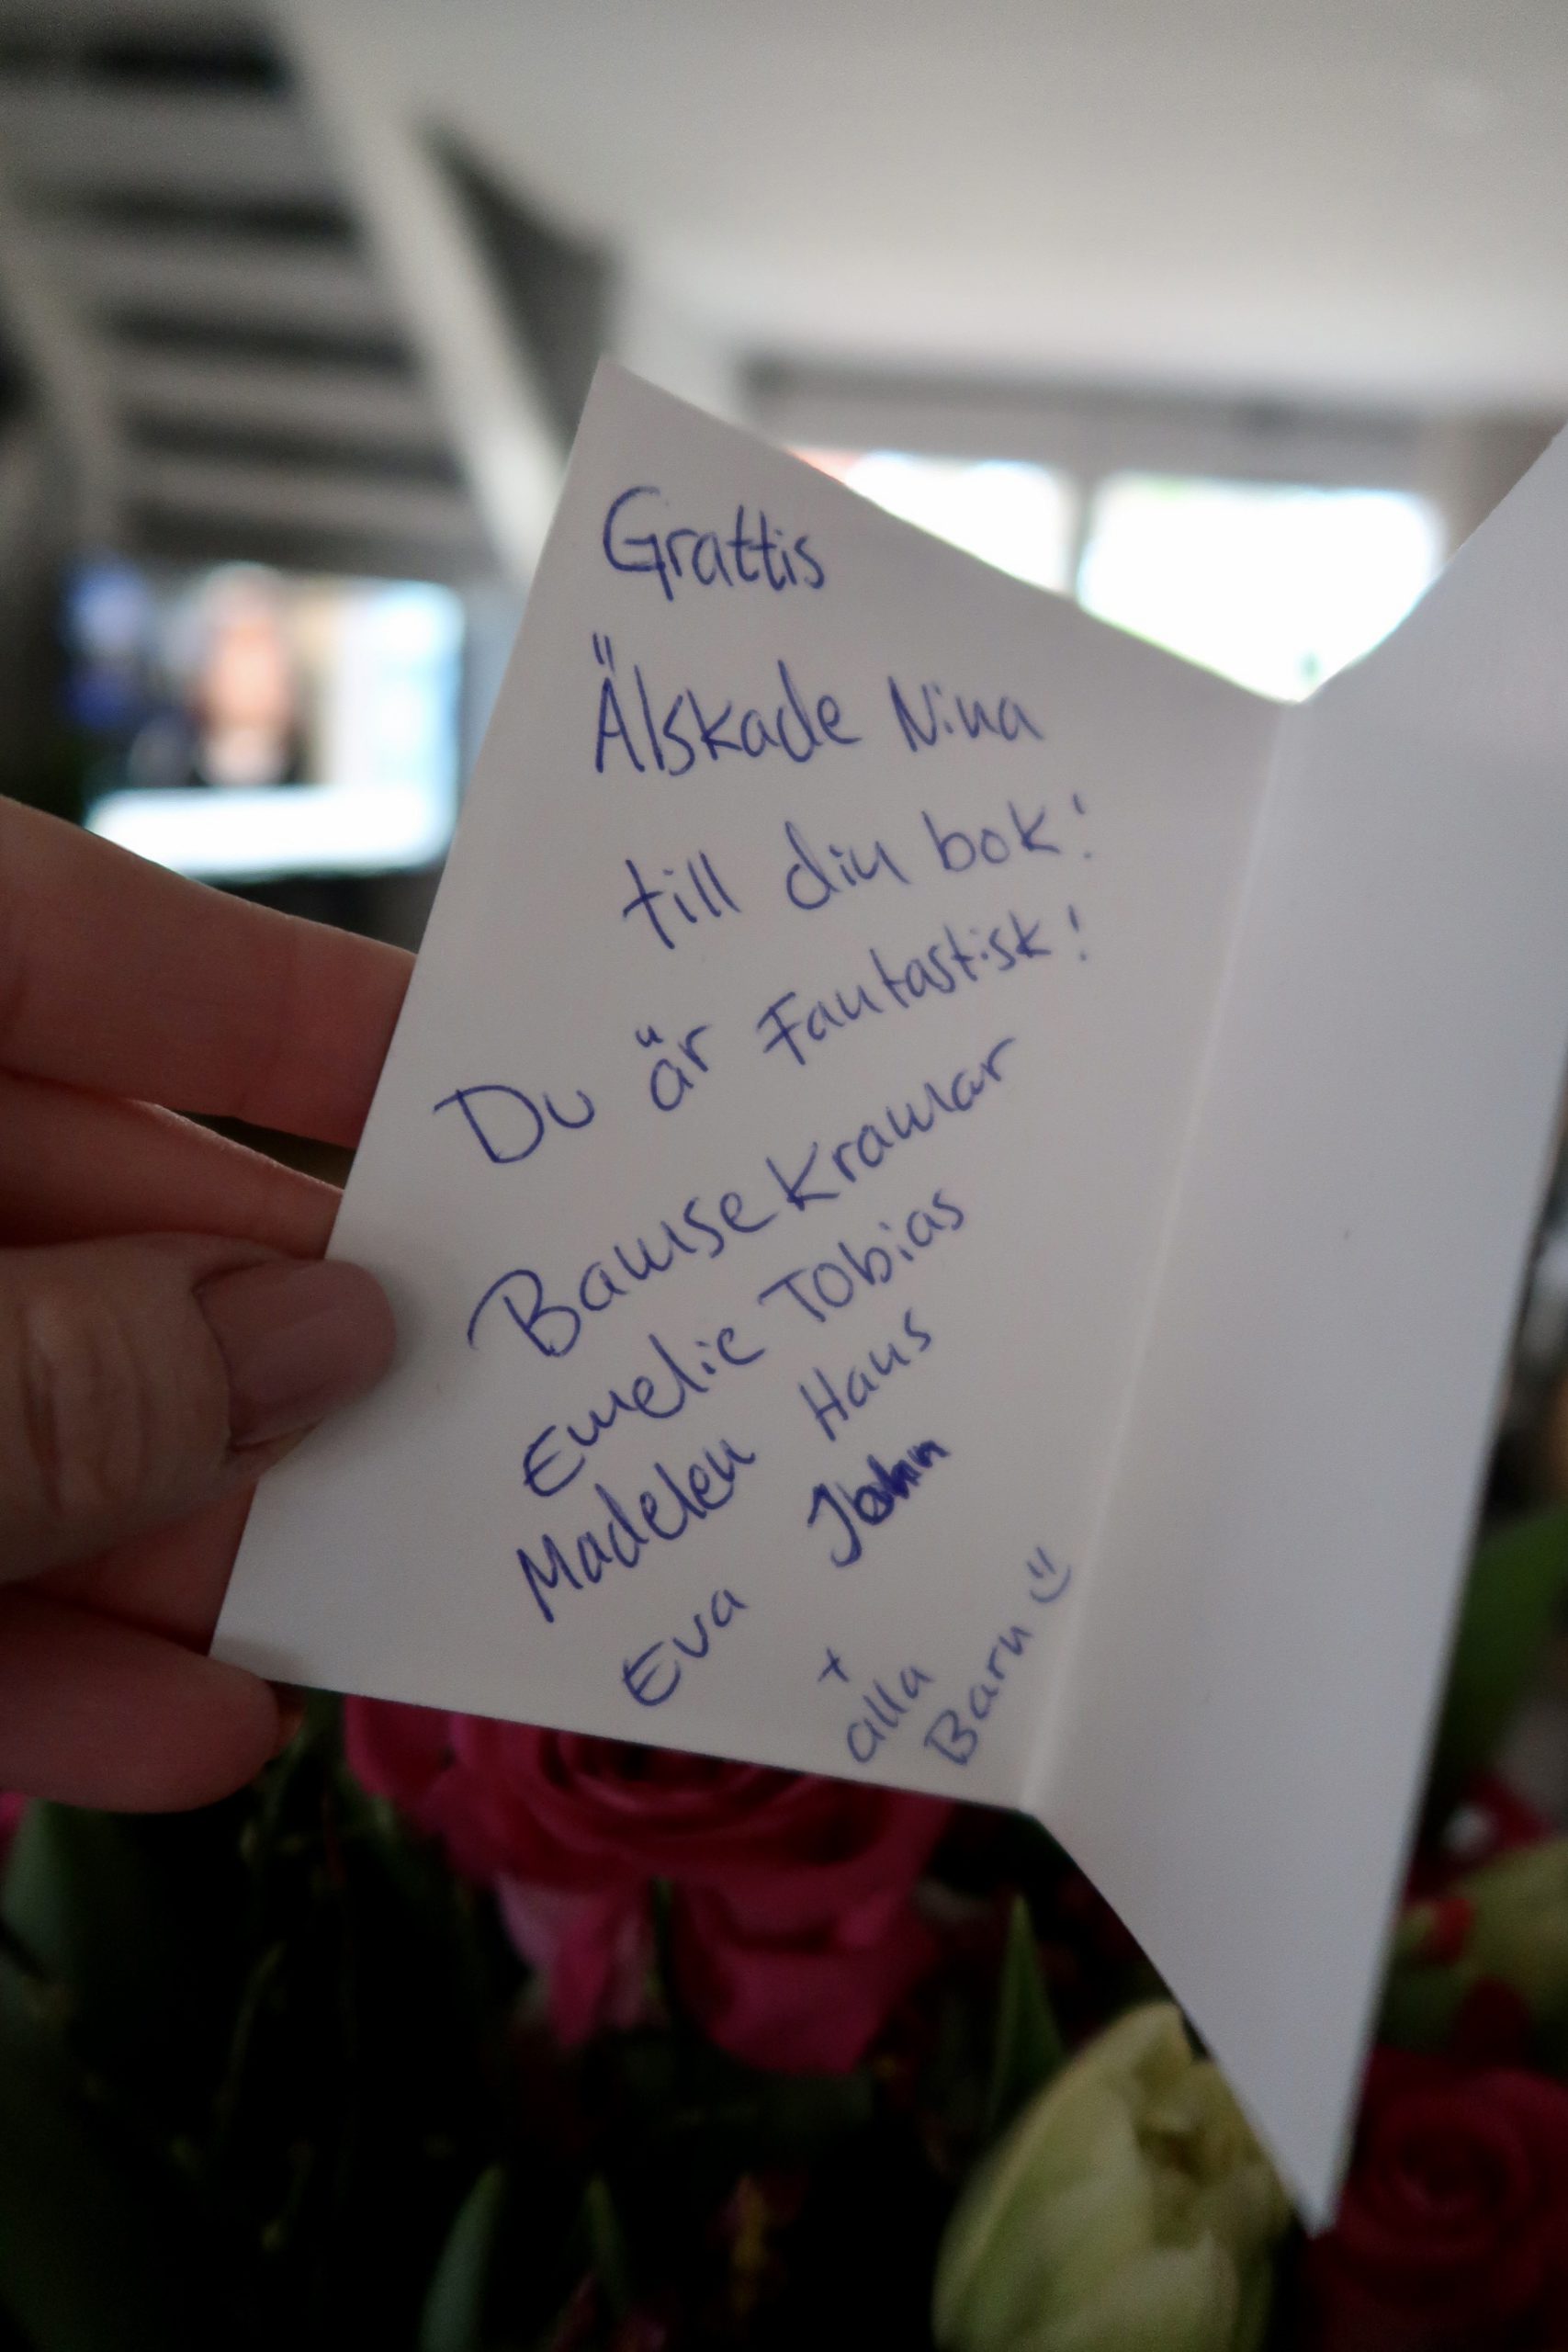 Grattis
Älskade Nina
till din bok!
Du är Fantastisk!
Bamsekramar
Emelie Tobias
Madelen Hans
Eva John
+
alla
Barn